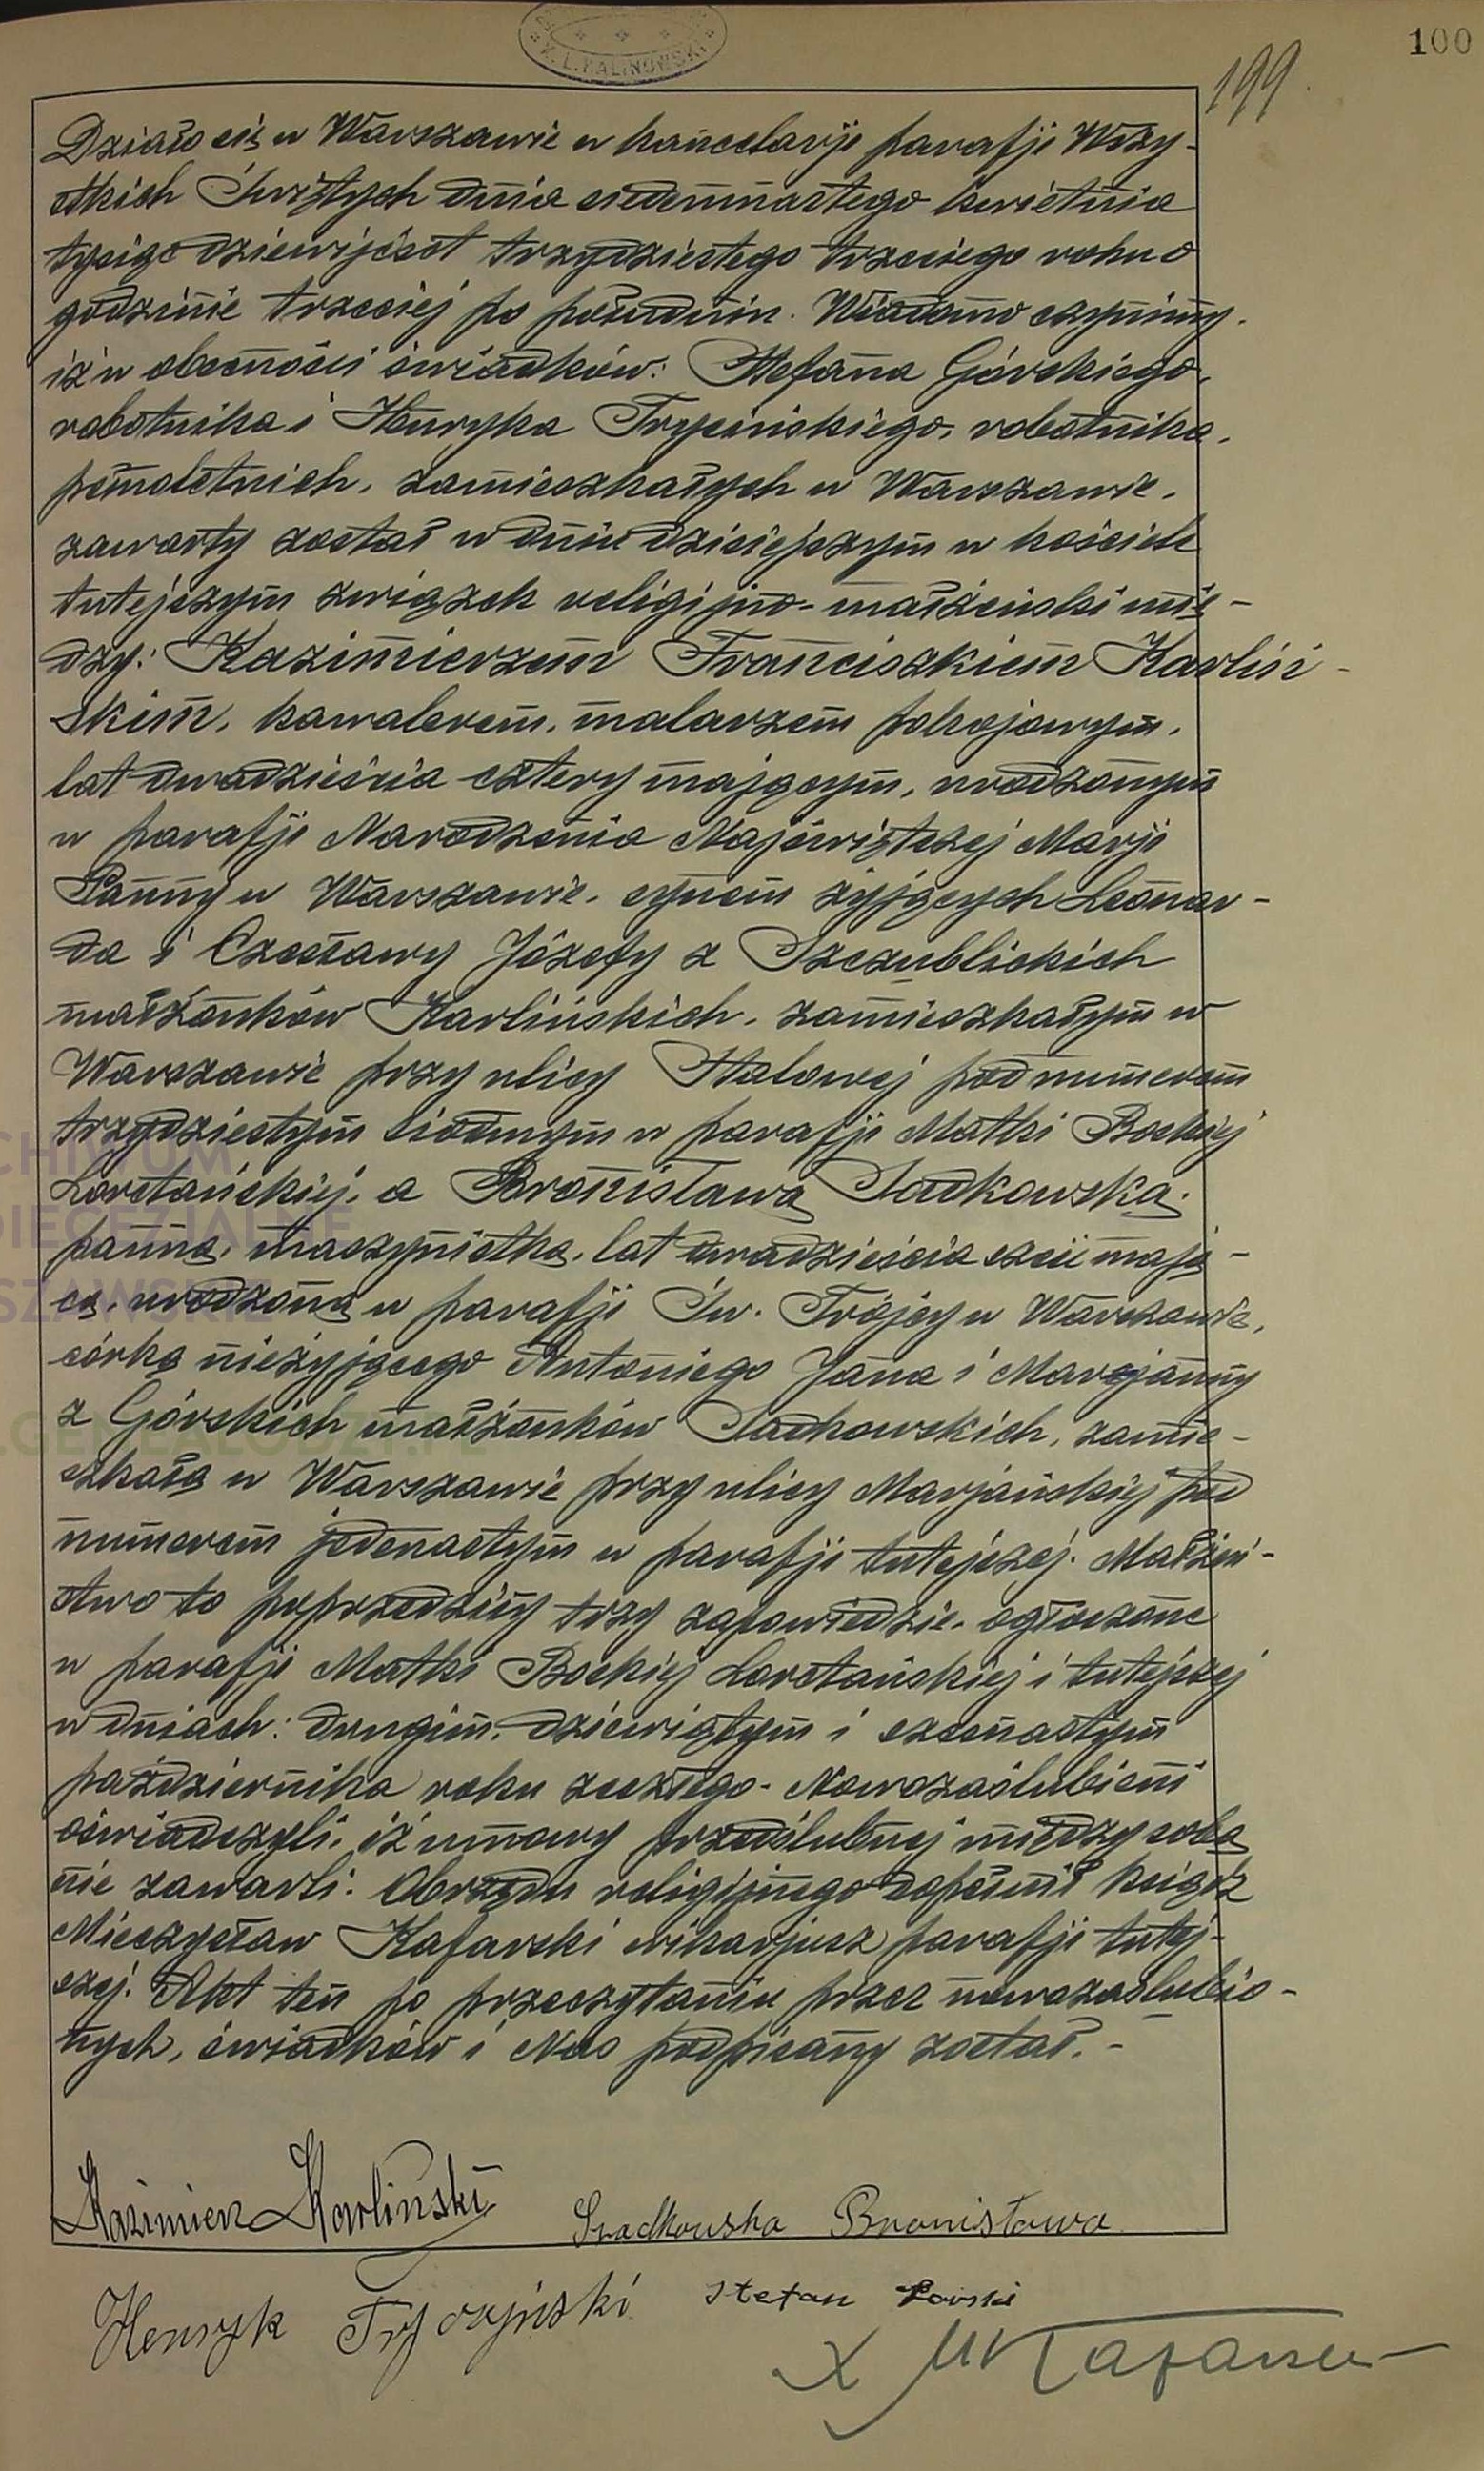 100
199
L. KALINOWSKI
Działo się w Warszawie w kancelarji parafji Wszy-
stkich Świętych dnia siedemnastego kwietnia
tysiąc dziewięćset trzydziestego trzeciego roku o
godzinie trzeciej po południu. Wiadomo czynimy,
iż w obecności świadków: Stefana Górskiego,
robotnika i Henryka Trycińskiego, robotnika,
pełnoletnich, zamieszkałych w Warszawie,
zawarty został w dniu dzisiejszym w kościele
tutejszym związek religijno-małżeński mię-
dzy: Kazimierzem Franciszkiem Karliń-
skim, kawalerem, malarzem pokojowym,
lat dwadzieścia cztery mającym, urodzonym
w parafji Narodzenia Najświętszej Marji
Panny w Warszawie, synem żyjących Leonar-
da i Czesławy Józefy z Szczublickich
małżonków Karlińskich, zamieszkałym w
Warszawie przy ulicy Stalowej pod numerem
trzydziestym siódmym w parafji Matki Boskiej
Loretańskiej, a Bronisławą Sadkowską,
panną, maszynistką, lat dwadzieścia sześć mają-
cą, urodzoną w parafji Św. Trójcy w Warszawie,
córką nieżyjącego Antoniego Jana i Marjanny
z Górskich małżonków Sadkowskich, zamie-
szkałą w Warszawie przy ulicy Marjańskiej pod
numerem jedenastym w parafji tutejszej. Małżeń-
stwo to poprzedziły trzy zapowiedzie, ogłoszone
w parafji Matki Boskiej Loretańskiej i tutejszej
w dniach: drugim, dziewiątym i szesnastym
października roku zeszłego. Nowozaślubieni
oświadczyli, iż umowy przedślubnej między sobą
nie zawarli. Obrzędu religijnego dopełnił ksiądz
Mieczysław Kafarski wikarjusz parafji tutej-
szej. Akt ten po przeczytaniu przez nowozaślubio-
nych, świadków i Nas podpisany został. -
Kazimierz Karliński Sadkowska Bronisława
Henryk Tryczyński Stefan Górski
X M Kafarski
ARCHIWUM
DIECEZJALNE
WARSZAWSKIE